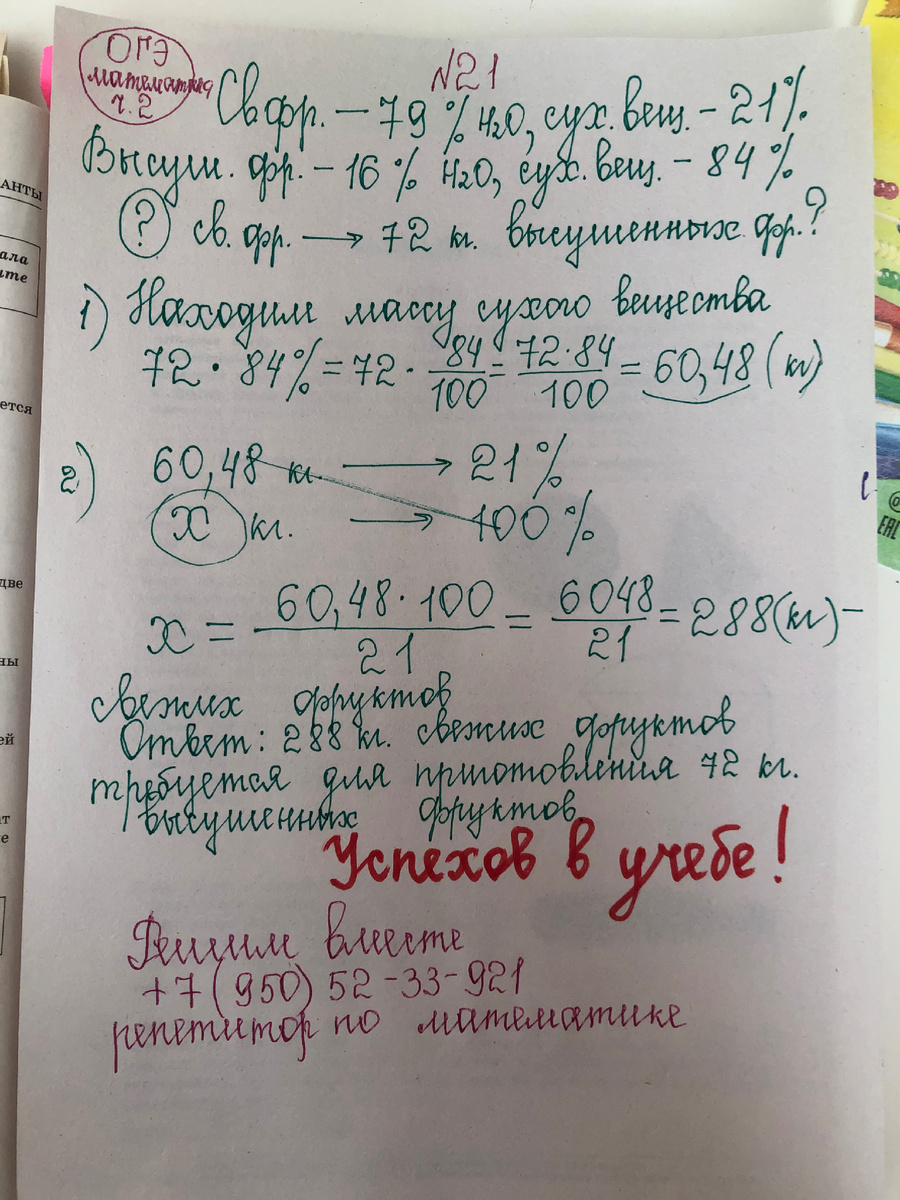 ОГЭ
математика
ч. 2
№21
Св фр. — 79 % H2O, сух. вещ. - 21%.
Высуш. фр. - 16 % H2O, сух. вещ. - 84 %
? св. фр. → 72 кг. высушенных фр.?
1) Находим массу сухого вещества
72 · 84% = 72 · 84/100 = 72·84/100 = 60,48 (кг)
2) 60,48 кг. → 21 %
х кг. → 100 %
х = 60,48 · 100/21 = 6048/21 = 288 (кг) –
свежих фруктов
Ответ: 288 кг. свежих фруктов
требуется для приготовления 72 кг.
высушенных фруктов
Успехов в учебе!
Решим вместе
+7 (950) 52-33-921
репетитор по математике
АНТЫ
ала
ите
ется
две
ны
ей
ат
е
EAC